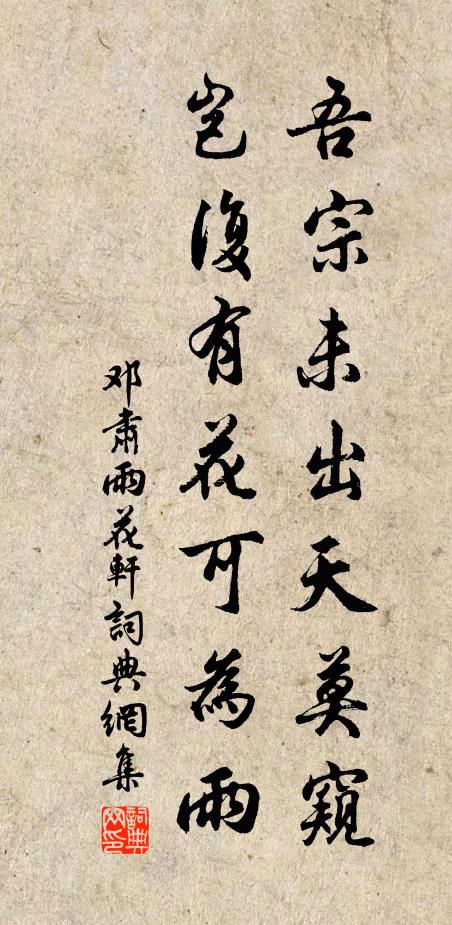 吾宗未出天莫窺
豈復有花可為雨
邓肅雨花軒詞典網集
詞典网印